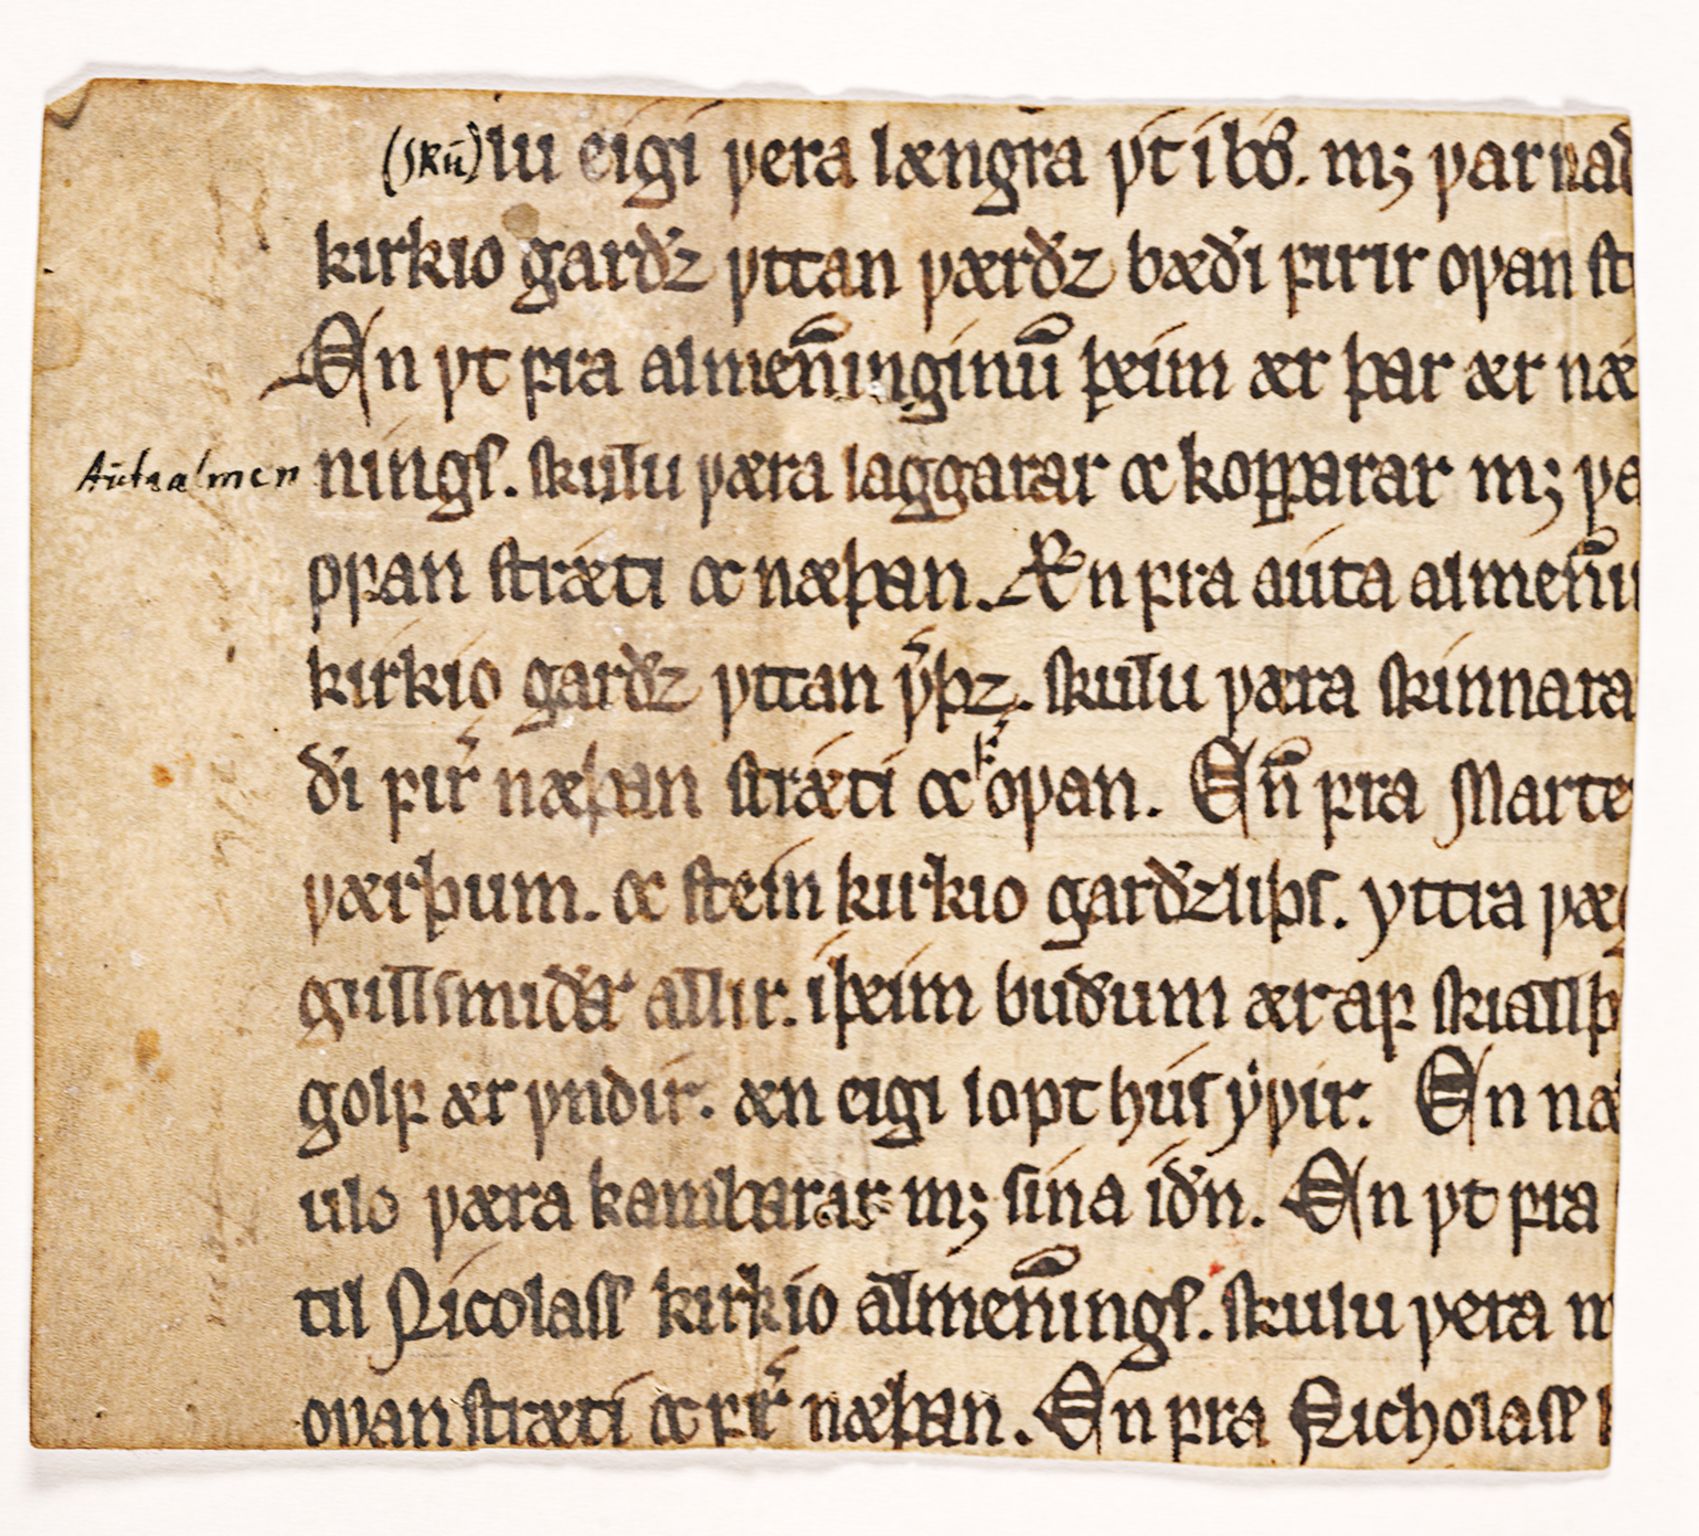 (skū)lu eigi ꝩera længra ꝩt i bø. mꝫ ꝩarnað
kirkio garðz ꝩttan ꝩærðz bæði ꝼirir oꝩan st
En ꝩt ꝼra almen̄inginū þeim ær þar ær næ
Autaalmen nings. skulu ꝩæra laggarar oc kopparar mꝫ ꝩa
oꝼan stræti oc næþan. Æn ꝼra auta almen̄i
kirkio garðz ꝩttan ꝩ͛þz. skulu ꝩæra skinnara
ði ꝼir͛ næþan stræti oc ꝼ͛ oꝩan. En̄ ꝼra Marte
ꝩærþum. oc stein kirkio garðzliþs. yttra ꝩæg
gullsmiðar allir. i þeim buðum ær aꝼ skiallþ
golꝼ ær ꝩndir. æn eigi lopt hus yꝩir. En næ
ulo ꝩæra kambarar mꝫ sina iðn. En ꝩt ꝼra
til Nicolass kirkio almen̄ings. skulu ꝩera m
oꝩan stræti oc ꝼir͛ næþan. En ꝼra Nicholass k